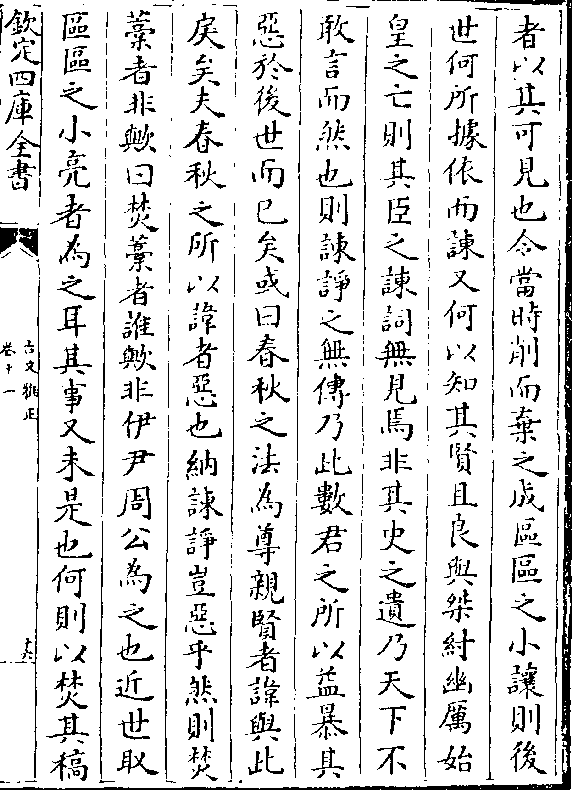 者以其可見也令當時削而棄之成區區之小讓則後
世何所據依而諫又何以知其賢且良與桀紂幽厲始
皇之亡則其臣之諫詞無見焉非其史之遺乃天下不
敢言而然也則諫諍之無傳乃此數君之所以益暴其
惡於後世而已矣或曰春秋之法為尊親賢者諱與此
戾矣夫春秋之所以諱者惡也納諫諍豈惡乎然則焚
藳者非歟曰焚藳者誰歟非伊尹周公為之也近世取
區區之小亮者為之耳其事又未是也何則以焚其稿
欽定四庫全書
古文雅正
卷十一